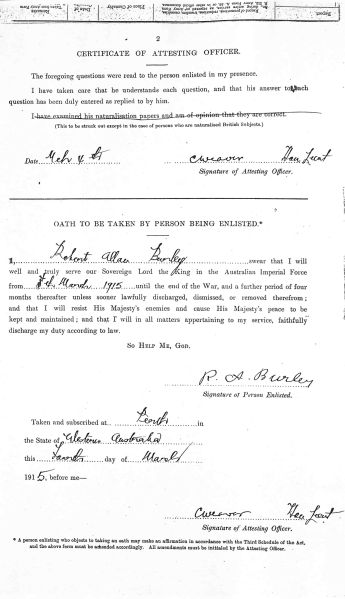 2
CERTIFICATE OF ATTESTING OFFICER.
The foregoing questions were read to the person enlisted in my presence.
I have taken care that he understands each question, and that his answer to each
question has been duly entered as replied to by him.
I have examined his naturalisation papers and am of opinion that they are correct.
(This to be struck out except in the case of persons who are naturalised British Subjects.)
Date
CWeaver
Signature of Attesting Officer.
OATH TO BE TAKEN BY PERSON BEING ENLISTED.*
I, Robert Allan Burley swear that I will
well and truly serve our Sovereign Lord the King in the Australian Imperial Force
from March 1915 until the end of the War, and a further period of four
months thereafter unless sooner lawfully discharged, dismissed, or removed therefrom; and
that I will resist His Majesty's enemies and cause His Majesty's peace to be
kept and maintained; and that I will in all matters appertaining to my service, faithfully
discharge my duty according to law.
SO HELP ME, GOD.
R. A. Burley
Signature of Person Enlisted.
Taken and subscribed at Perth in
the State of Western Australia
this Fourth day of March
1915, before me—
CWeaver
Signature of Attesting Officer.
* A person enlisting who objects to taking an oath may make an affirmation in accordance with the Third Schedule of the Act,
and the above form must be amended accordingly. All amendments must be initialled by the Attesting Officer.